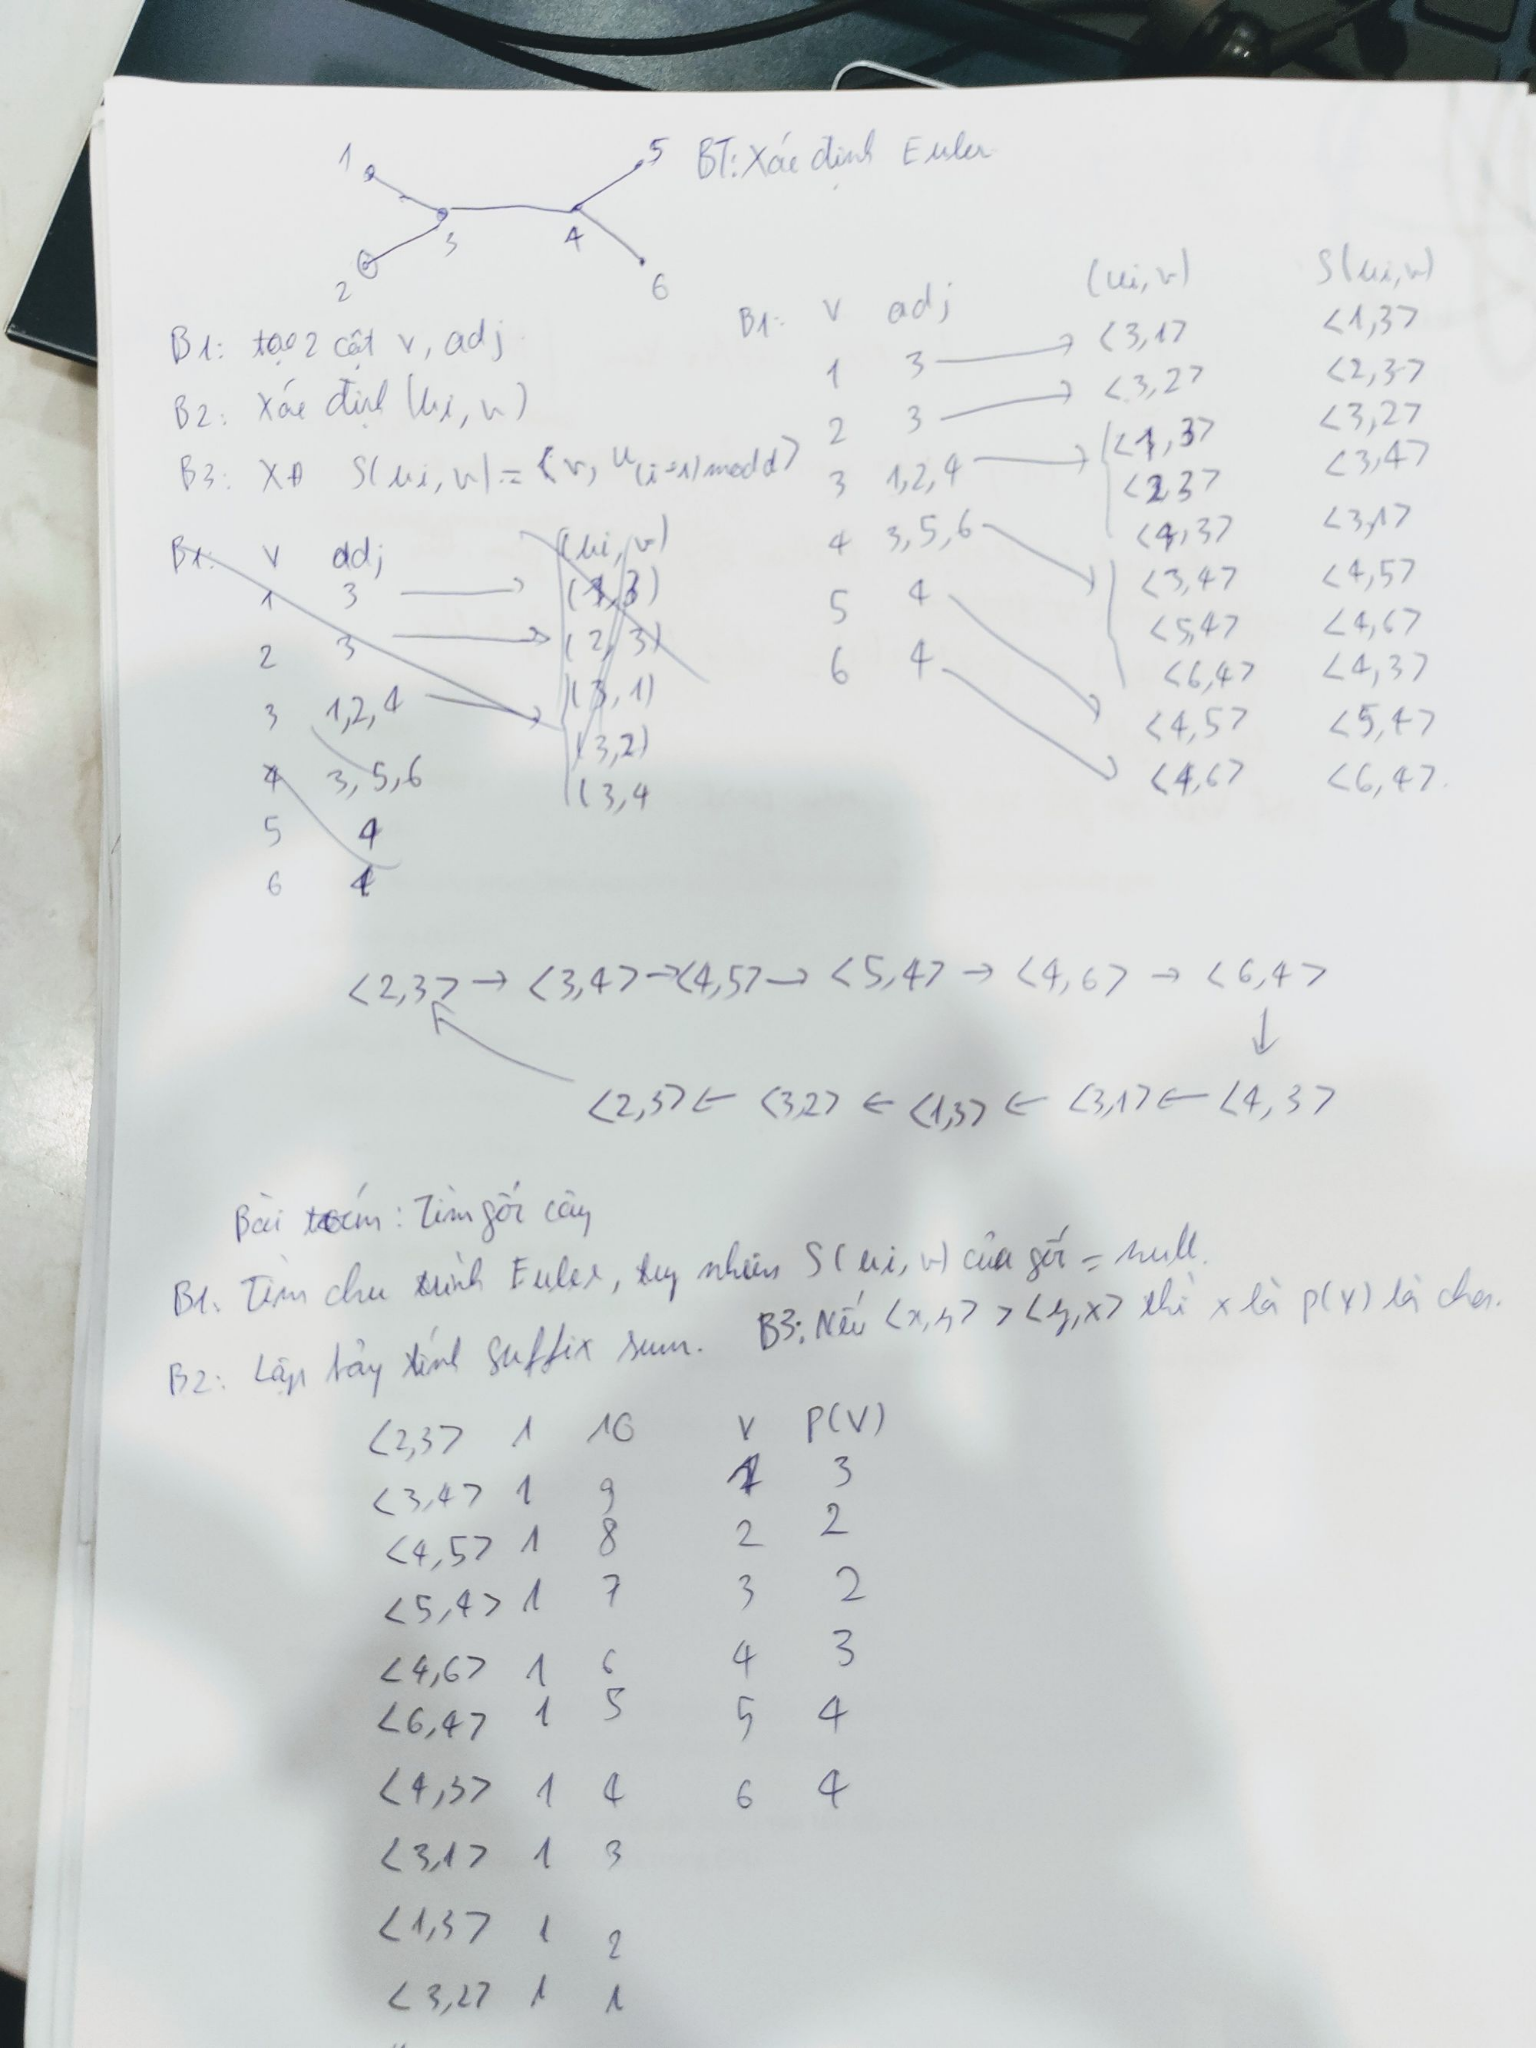 BT: Xác định Euler
1 5
3 4
2 6
B1: tạo 2 cột v, adj
B2: Xác định (ui, v)
B3: XĐ S(ui, v) = <v, u(i+1) mod d>
B1: v adj (ui, v)
1 3 (1,3)
2 3 (2,3)
3 1,2,4 (3,1)
(3,2)
4 3,5,6 (3,4
5 4
6 4
B1: v adj (ui, v) S(ui, v)
1 3 <3,1> <1,3>
2 3 <3,2> <2,3>
3 1,2,4 <1,3> <3,2>
<2,3> <3,4>
<4,3> <3,1>
4 3,5,6 <3,4> <4,5>
<5,4> <4,6>
<6,4> <4,3>
5 4 <4,5> <5,4>
6 4 <4,6> <6,4>.
<2,3> → <3,4> → <4,5> → <5,4> → <4,6> → <6,4>
↓
<2,3> ← <3,2> ← <1,3> ← <3,1> ← <4,3>
Bài toán: Tìm gốc cây
B1: Tìm chu trình Euler, tuy nhiên S(ui, v) của gốc = null.
B2: Lập bảng tính suffix sum. B3: Nếu <x,y> > <y,x> thì x là P(Y) là cha.
<2,3> 1 10 v P(V)
<3,4> 1 9 1 3
<4,5> 1 8 2 2
<5,4> 1 7 3 2
<4,6> 1 6 4 3
<6,4> 1 5 5 4
<4,3> 1 4 6 4
<3,1> 1 3
<1,3> 1 2
<3,2> 1 1